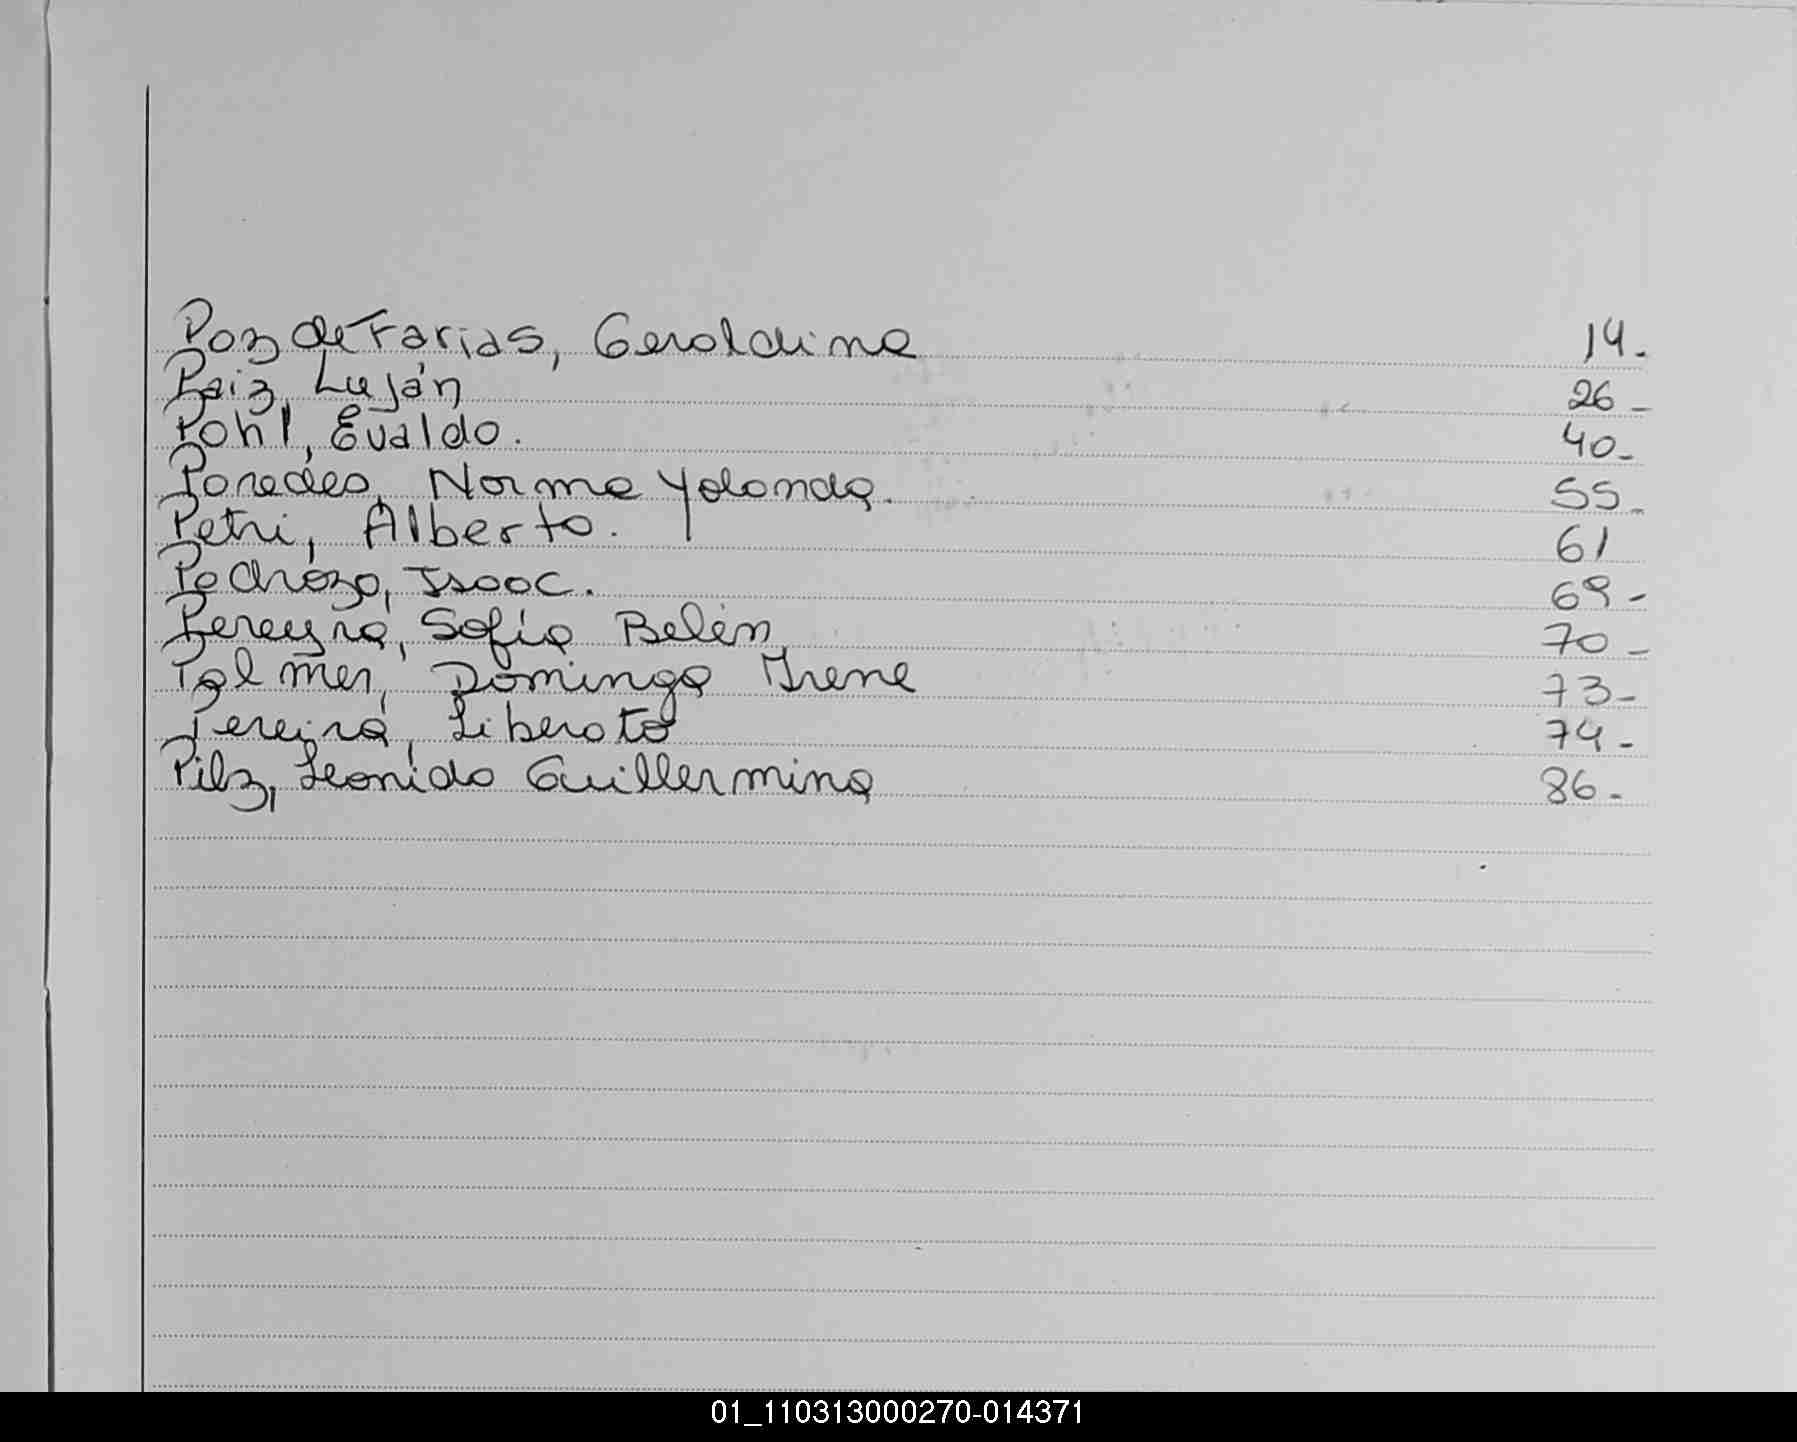 Paz de Farias, Geraldina 14.
Paiz, Luján 26-
Pohl, Evaldo. 40-
Paredes, Norma Yolanda. 55-
Petri, Alberto. 61
Pedrozo, Isaac. 69-
Pereyra, Sofía Belén 70-
Palmer, Dominga Irene 73-
Pereira, Liberato 74-
Pilz, Leonida Guillermina 86-
01_110313000270-014371